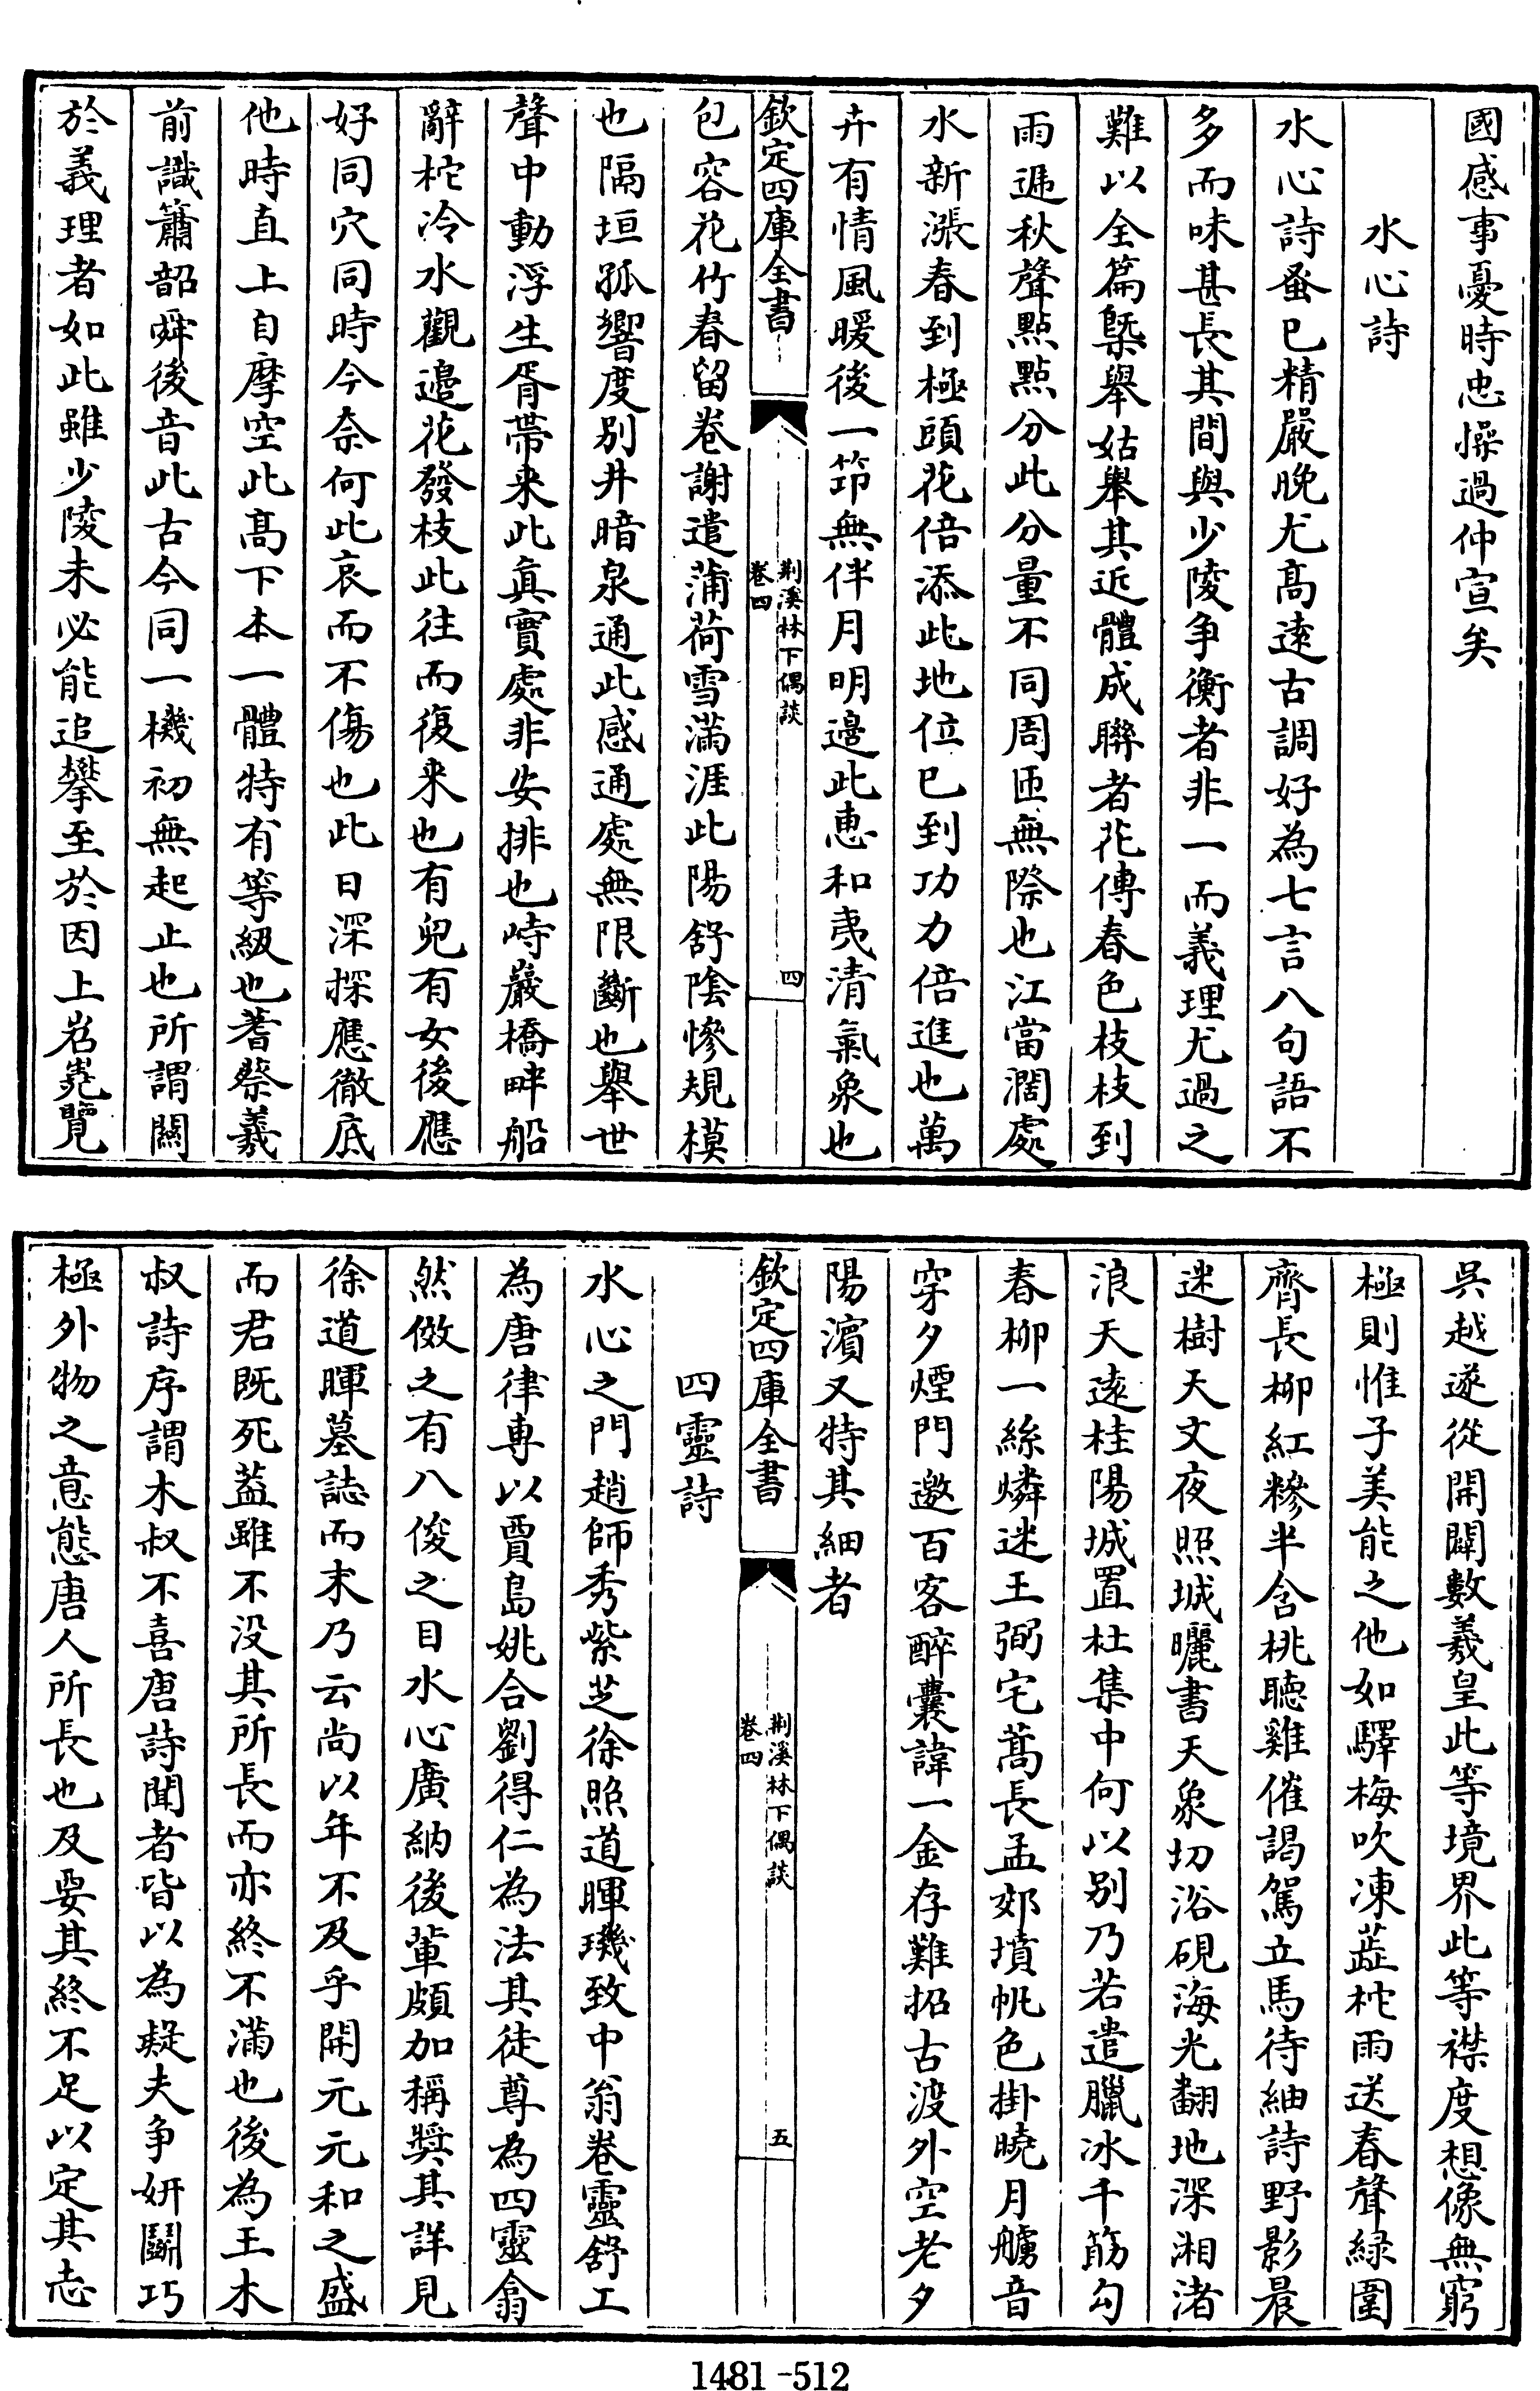 國感事憂時忠懆過仲宣矣
水心詩
水心詩蚤已精嚴晚尤髙逺古調好為七言八句語不
多而味甚長其間與少陵争衡者非一而義理尤過之
難以全篇槩舉姑舉其近體成聯者花傳春色枝枝到
雨遞秋聲點點分此分量不同周匝無際也江當濶處
水新漲春到極頭花倍添此地位已到功力倍進也萬
卉有情風暖後一笻無伴月明邉此惠和夷清氣象也
欽定四庫全書
荆溪林下偶談
卷四
四
包容花竹春留巷謝遣蒲荷雪滿涯此陽舒陰慘規模
也隔垣孤響度别井暗泉通此感通處無限斷也舉世
聲中動浮生胥帶来此真實處非安排也峙巖橋畔船
辭柁冷水觀邉花發枝此往而復来也有兒有女後應
好同穴同時今奈何此哀而不傷也此日深探應徹底
他時直上自摩空此髙下本一體特有等級也蓍蔡羲
前識簫韶舜後音此古今同一機初無起止也所謂闗
於義理者如此雖少陵未必能追攀至於因上岧嶤覽
吳越遂從開闢數羲皇此等境界此等襟度想像無窮
極則惟子美能之他如驛梅吹凍蕋柁雨送春聲緑圍
齊長柳紅糝半含桃聴雞催謁駕立馬待紬詩野影晨
迷樹天文夜照城曬書天象切浴硯海光翻地深湘渚
浪天逺桂陽城置杜集中何以别乃若遣臘冰千筯勾
春栁一絲燐迷王弼宅蒿長孟郊墳帆色掛曉月艣音
穿夕煙門邀百客醉囊諱一金存難招古渡外空老夕
陽濵又特其細者
欽定四庫全書
荆溪林下偶談
卷四
五
四靈詩
水心之門趙師秀紫芝徐照道暉璣致中翁卷靈舒工
為唐律專以賈島姚合劉得仁為法其徒尊為四靈翕
然傚之有八俊之目水心廣納後輩頗加稱奬其詳見
徐道暉墓誌而末乃云尚以年不及乎開元元和之盛
而君既死葢雖不没其所長而亦終不滿也後為王木
叔詩序謂木叔不喜唐詩聞者皆以為疑夫争妍鬭巧
極外物之意態唐人所長也及要其終不足以定其志
1481-512